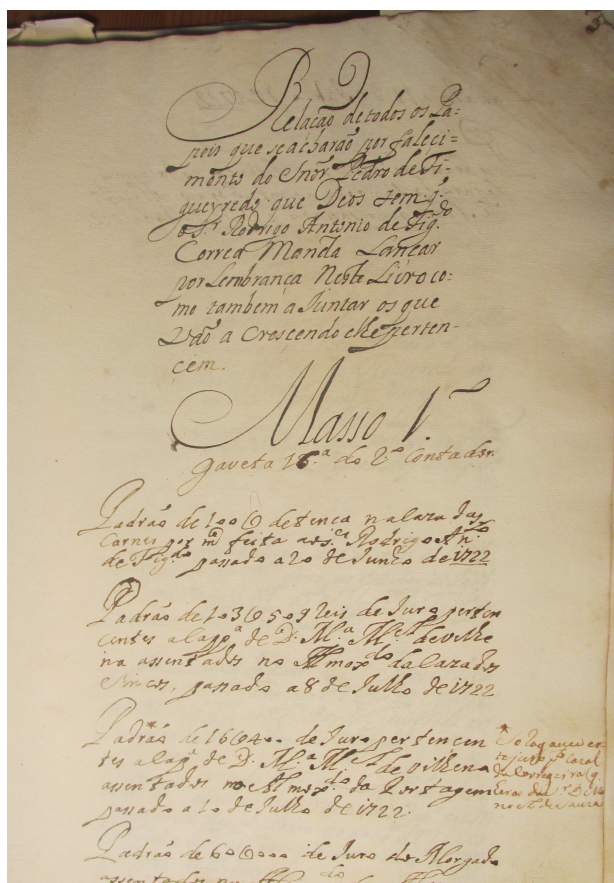 Relação de todos os Pa=
peis que se acharão por faleci=
mento do Snõr Pedro de Fi=
gueyredo, que Deos tem, q̃
o S.r Rodrigo Antonio de Fig.do
Correa Manda Lançar
por Lembrança Neste Livro co=
mo tambem a Juntar os que
Vão a Crescendo e lhe perten-
cem.
Masso 1.º
Gaveta 16.ª do 2.º Contador.
Padrão de 100@ de tença na Caza das
Carnes por m.ce feita ao S.r Rodrigo An.to
de Fig.do passado a 20 de Junho de 1722
Padrão de 103@509 reis de Juro perten
centes a Cap.ª de D. M.ª M.el de Vilhe
na assentados no Almox.do da Caza dos
Sincos, passado a 8 de Julho de 1722
Padrão de 160400 de Juro pertencen
tes a Cap.ª de D. M.ª M.el de Vilhena
assentados no Almox.do da Portagem
passado a 10 de Julho de 1722.
Padrão de 60@000 de Juro do Morgado
assentados no Almox.do